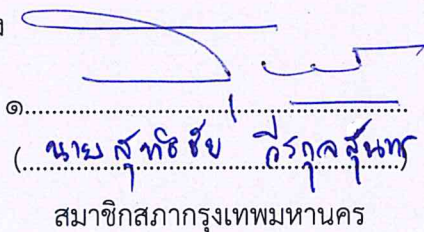 ง
๑
(นายสุทธิชัย วีรกุลสุนทร)
สมาชิกสภากรุงเทพมหานคร